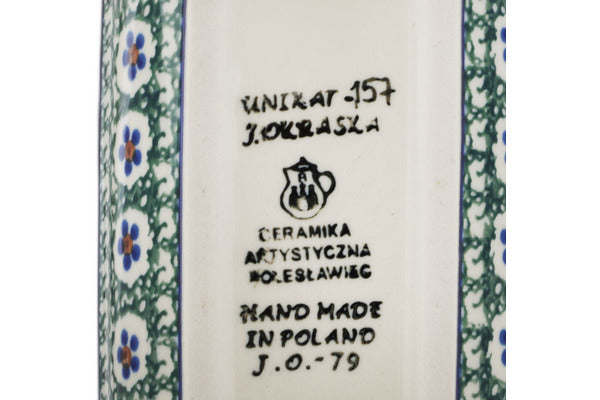 UNIKAT-157
J.OKRASKA
CERAMIKA
ARTYSTYCZNA
BOLESŁAWIEC
HAND MADE
IN POLAND
J.O.-79